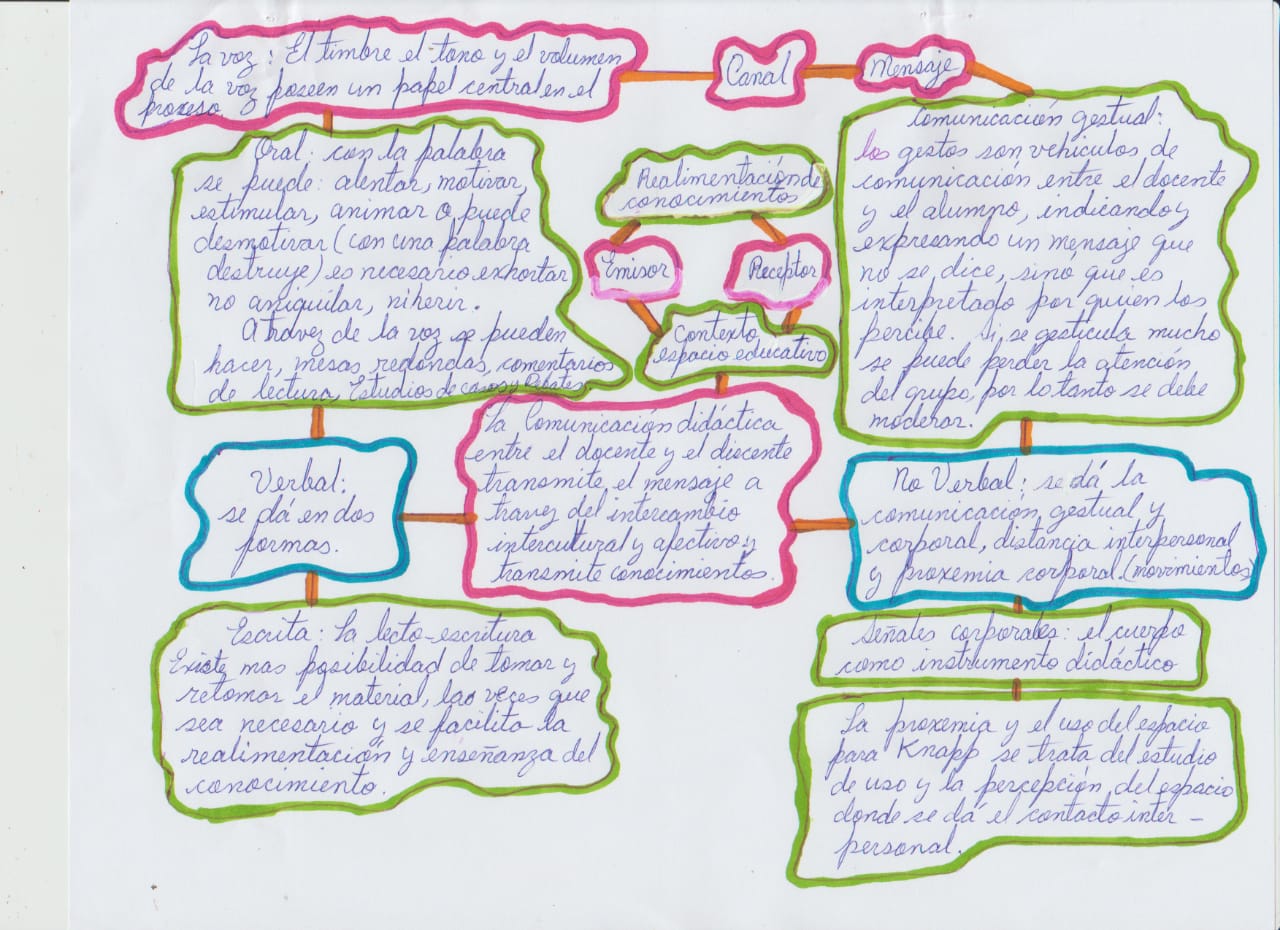 La voz: El timbre el tono y el volumen
de la voz poseen un papel central en el
proseso.
Canal
Mensaje
Oral: con la palabra
se puede: alentar, motivar,
estimular, animar o puede
desmotivar (con una palabra
destruye) es necesario exhortar
no aniquilar, ni herir.
Atravez de la voz se pueden
hacer, mesas redondas, comentarios
de lectura, Estudios de casos y Debates.
Realimentación de
conocimientos
Emisor
Receptor
Contexto
espacio educativo
Comunicación gestual:
los gestos son vehículos de
comunicación entre el docente
y el alumno, indicando y
expresando un mensaje que
no se dice, sinó que es
interpretado por quien los
percibe. Si se gesticula mucho
se puede perder la atención
del grupo, por lo tanto se debe
moderar.
Verbal:
se dá en dos
formas.
La Comunicación didáctica
entre el docente y el discente
transmite, el mensaje a
travez del intercambio
intercultural y afectivo y
transmite conocimientos.
No Verbal: se dá la
comunicación gestual y
corporal, distancia interpersonal
y proxemia corporal. (movimientos)
Escrita: La lecto-escritura
Existe mas posibilidad de tomar y
retomar el material, las veces que
sea necesario y se facilita la
realimentación y enseñanza del
conocimiento.
Señales corporales: el cuerpo
como instrumento didáctico
La proxemia y el uso del espacio
para Knapp se trata del estudio
de uso y la percepción del espacio
donde se dá el contacto inter-
personal.